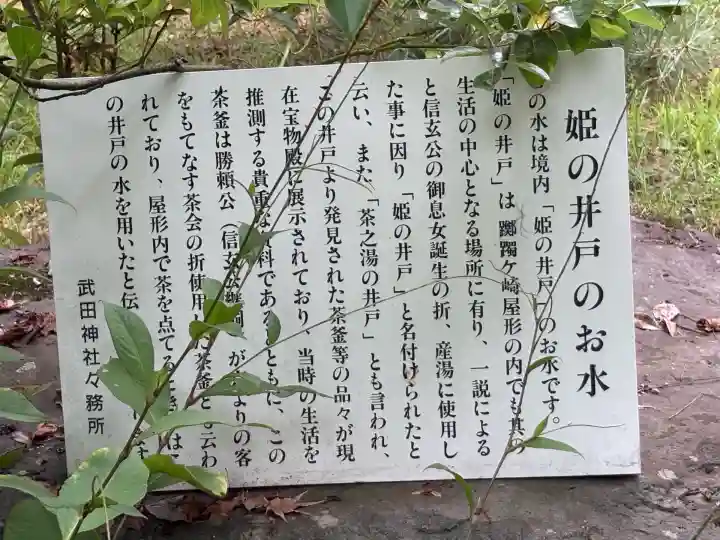 姫の井戸のお水
の水は境内「姫の井戸」のお水です。
「姫の井戸」は躑躅ケ崎屋形の内でも其の
生活の中心となる場所に有り、一説による
と信玄公の御息女誕生の折、産湯に使用し
た事に因り「姫の井戸」と名付けられたと
云い、また「茶之湯の井戸」とも言われ、
この井戸より発見された茶釜等の品々が現
在宝物殿に展示されており、当時の生活を
推測する貴重な資料であるとともに、この
茶釜は勝頼公（信玄公 が よりの客
をもてなす茶会の折使用した茶釜と云わ
れており、屋形内で茶を点てるときは
の井戸の水を用いたと伝 す
武田神社々務所